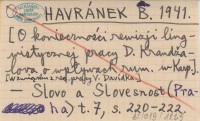 HAVRÁNEK B. 1941.
[O konieczności rewizji ling-
wistycznej pracy D. Krandža-
lova o wpływach rum. w Karp.]
[w związku z rec. pracy V. Davídka]
Slovo a Slovesnost (Pra-
ha) t. 7, s. 220-222.